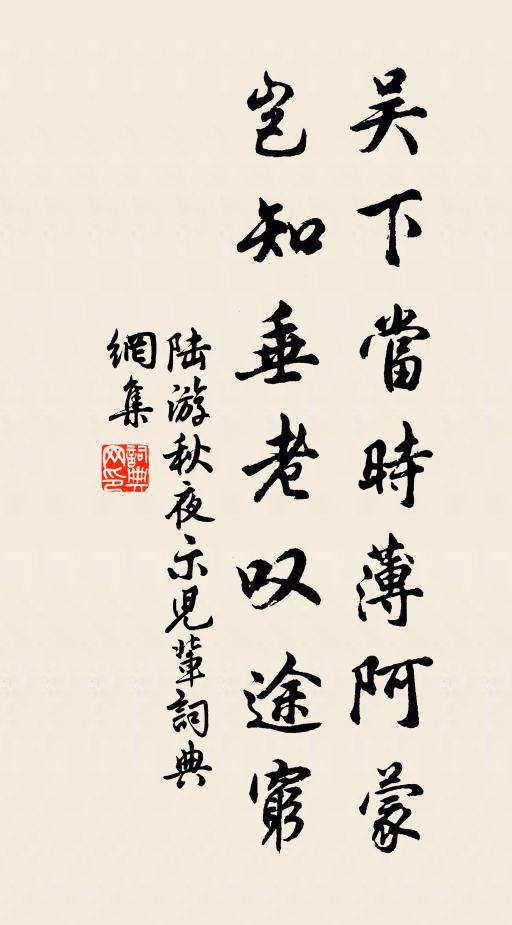 吴下當時薄阿蒙
豈知垂老叹途窮
陆游秋夜示兒輩詞典
網集
詞典
网印